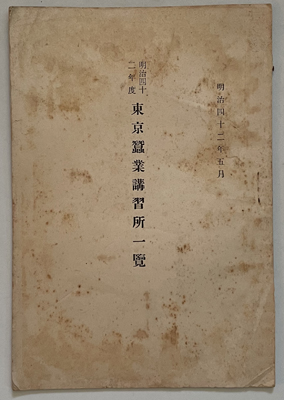 明治四十二年五月
明治四十
二年度
東京蠶業講習所一覽